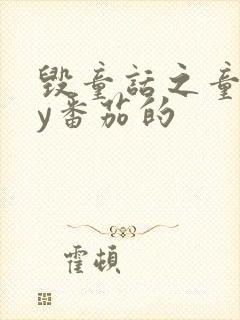 毁童话之童
y番茄的
霍顿